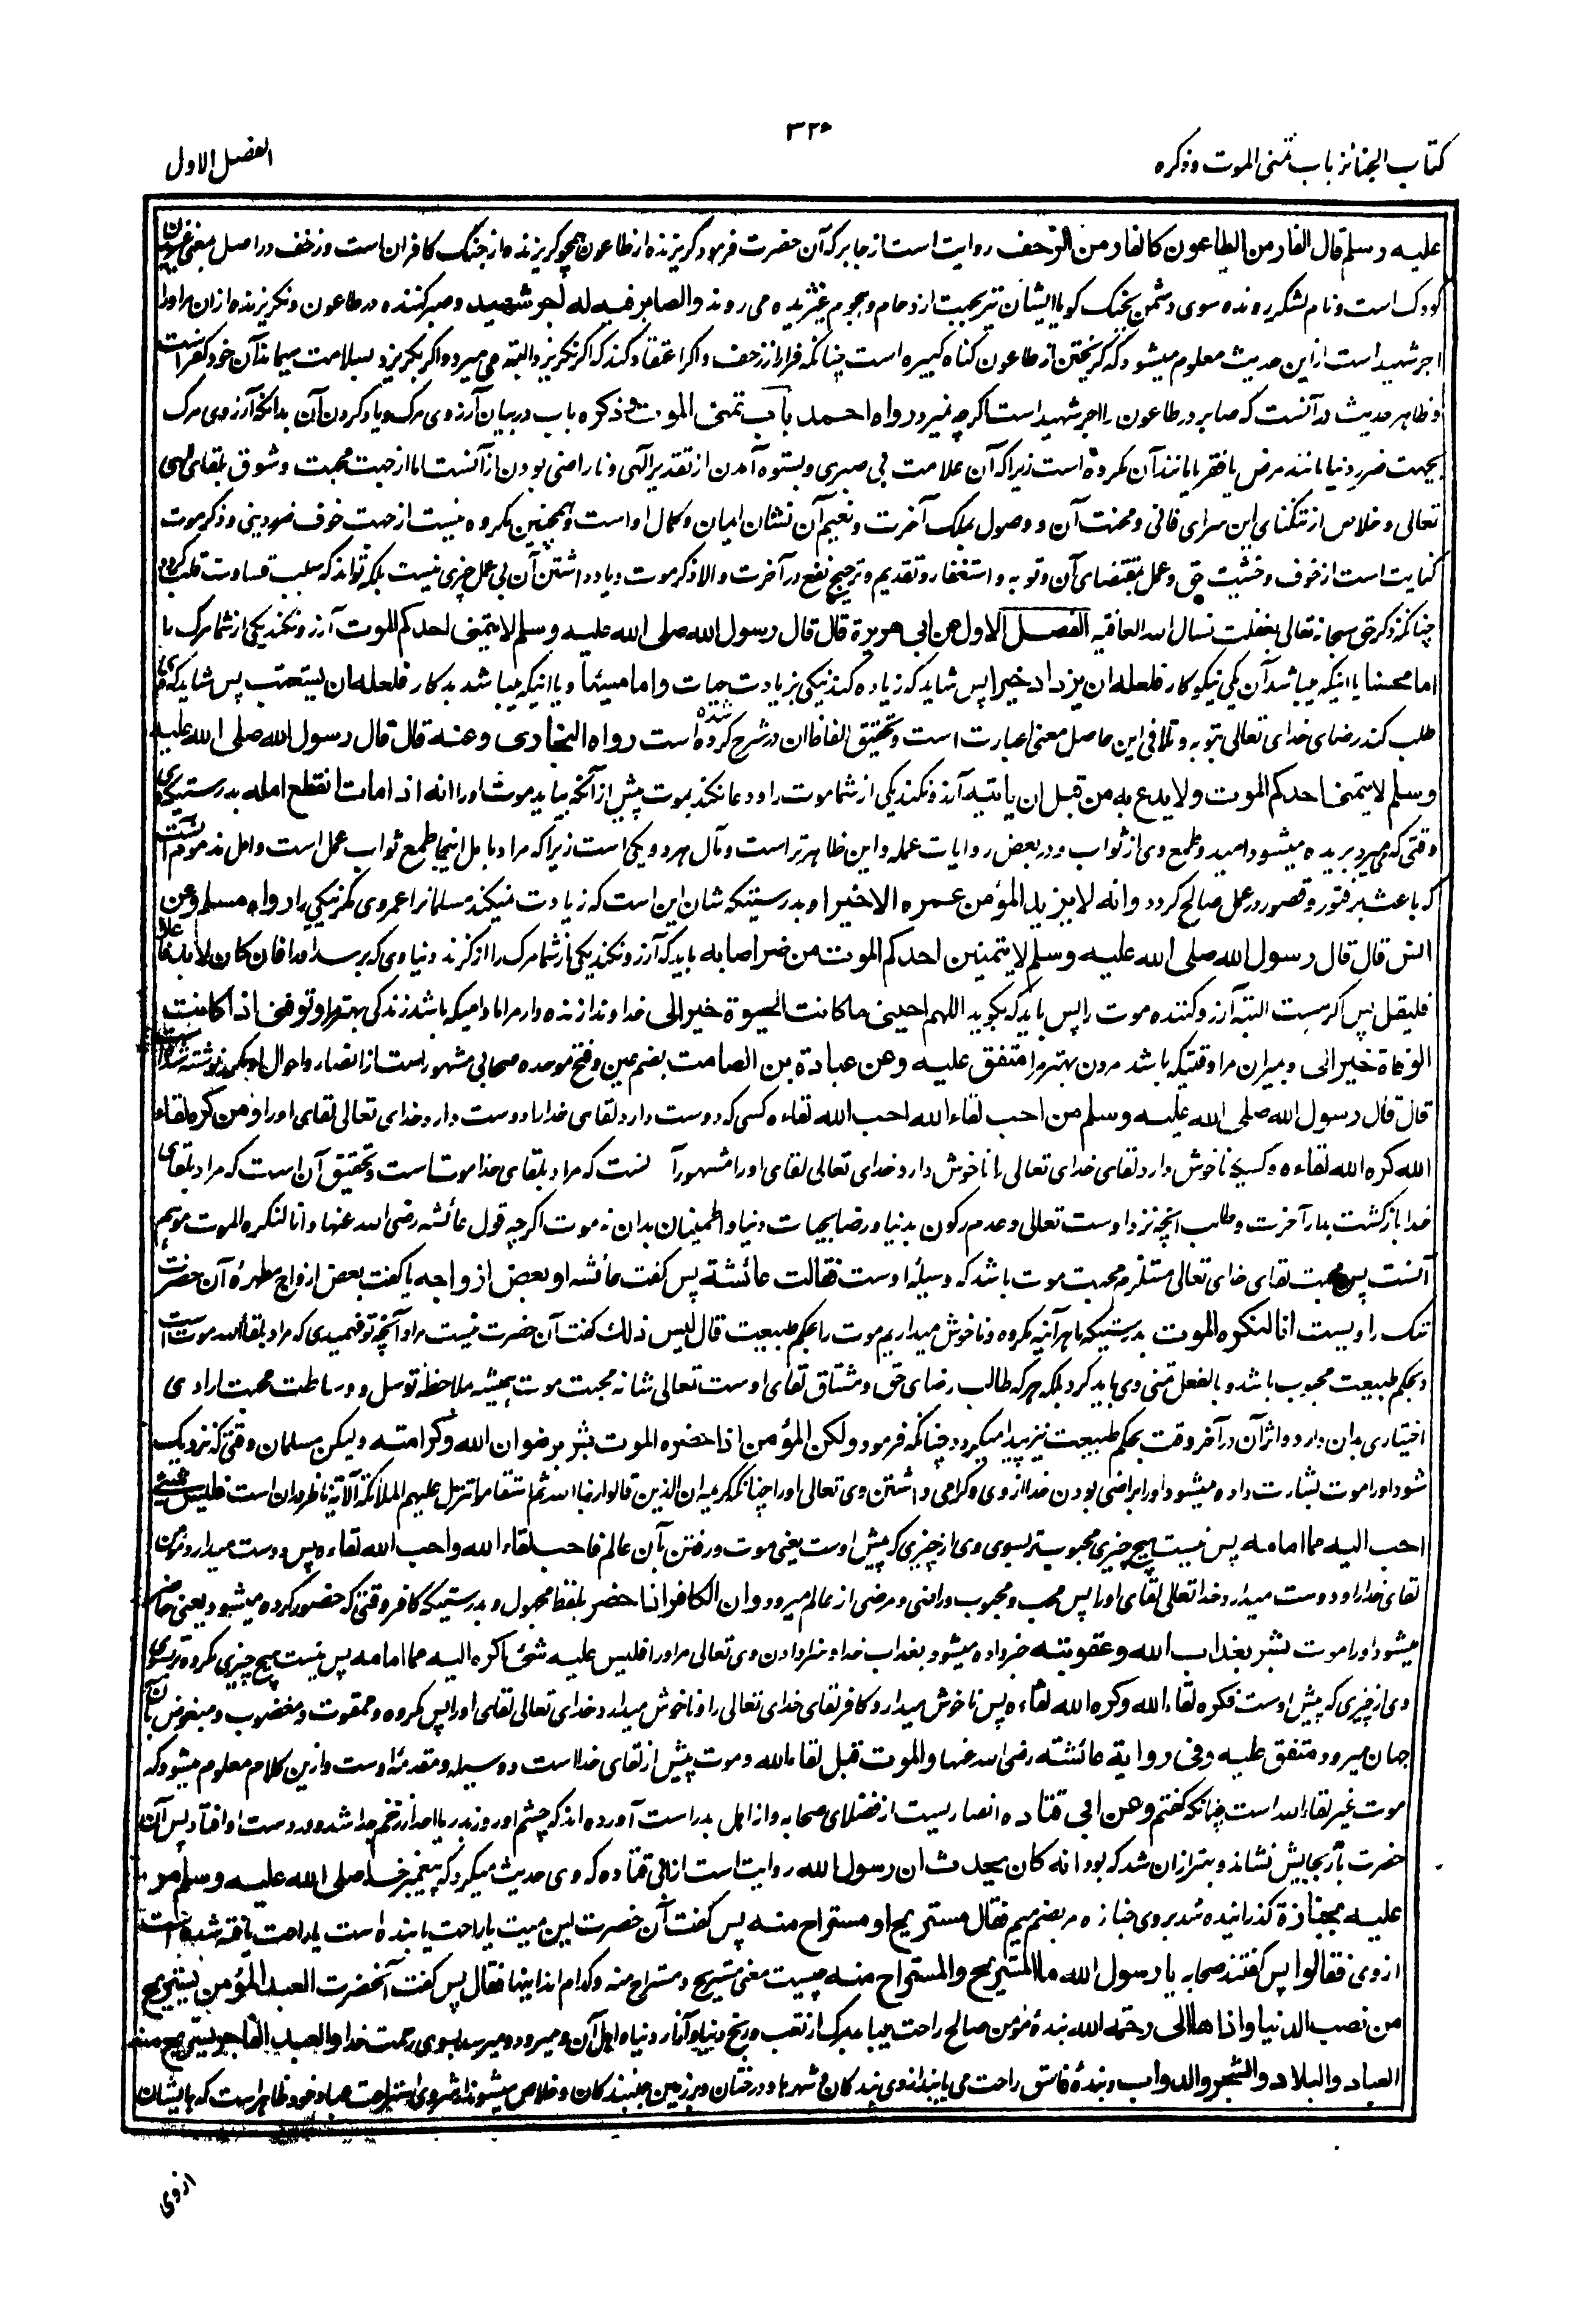 کتاب الجنائز باب تمنی الموت وذکره
۳۲۶
الفصل الاول
علیه وسلم قال الفار من الطاعون کالفار من الزحف روایت است از جابر که آن حضرت فرمود گریزنده از طاعون همچو گریزنده از جنگ کافران است و زحف در اصل بمعنی
کودک است و نام لشکر رونده سوی دشمن بجنگ گویا ایشان نیز بجهت ازدحام و هجوم غیژیده می روند والصابر فیه له اجر شهید و صبر کننده در طاعون و نگریزنده ازان مر او را
اجر شهید است ازین حدیث معلوم میشود که گریختن از طاعون گناه کبیره است چنانکه فرار از زحف و اگر اعتقاد کند که اگر نگریزد البته می میرد و اگر بگریزد بسلامت میماند آن خود کفر است
و ظاهر حدیث در آنست که صابر در طاعون را اجر شهید است اگرچه نمیرد رواه احمد باب تمنی الموت وذکره باب در بیان آرزوی مرگ و یاد کردن آن بدانکه آرزوی مرگ
بجهت ضرر دنیا مانند مرض یا فقر یا مانند آن مکروه است زیرا که آن علامت بی صبری و بستوه آمدن از تقدیر الهی و ناراضی بودن از آنست اما از جهت محبت و شوق بلقای الهی
تعالی و خلاص از تنگنای این سرای فانی و محنت آن و وصول بملک آخرت و نعیم آن نشان ایمان و کمال او است و همچنین مکروه نیست از جهت خوف ضرر دینی و ذکر موت
کنایت است از خوف و خشیت حق و عمل بمقتضای آن و توبه و استغفار و تقدیم و ترجیح نفع در آخرت والا ذکر موت و یاد داشتن آن بی عمل چیزی نیست بلکه تواند که سبب قساوت قلب گردد
چنانکه ذکر حق سبحانه تعالی بغفلت نسال الله العافیه الفصل الاول عن ابی هریرة قال قال رسول الله صلی الله علیه وسلم لا یتمنی احدکم الموت آرزو نکند یکی از شما مرگ را
اما محسنا یا اینکه میباشد آن یکی نیکوکار فلعله ان یزداد خیرا پس شاید که زیاده کند نیکی بزیادت حیات واما مسیئا و یا اینکه میباشد بدکار فلعله ان یستعتب پس شاید که
طلب کند رضای خدای تعالی بتوبه و تلافی این حاصل معنی عبارت است و تحقیق الفاظ ان در شرح کرده شده است رواه البخاری وعنه قال قال رسول الله صلی الله علیه
وسلم لا یتمنی احدکم الموت ولا یدع به من قبل ان یاتیه آرزو نکند یکی از شما موت را و دعا نکند بموت پیش از آنکه بیاید موت او را انه اذا مات انقطع امله بدرستیکه
وقتی که میمیرد بریده میشود امید و طمع وی از ثواب و در بعض روایات عمله و این ظاهرتر است و مآل هر دو یکی است زیرا که مراد بامل اینجا طمع ثواب عمل است و امل مذموم آنست
که باعث بر فتور و قصور در عمل صالح گردد وانه لا یزید المؤمن عمره الا خیرا و بدرستیکه شان این است که زیادت نمیکند مسلمانرا عمر وی مگر نیکی را رواه مسلم وعن
انس قال قال رسول الله صلی الله علیه وسلم لا یتمنین احدکم الموت من ضر اصابه باید که آرزو نکند یکی از شما مرگ را از گزند دنیاوی که برسد او را فان کان لا بد فاعلا
فلیقل پس اگر هست البته آرزو کننده موت را پس باید که بگوید اللهم احینی ما کانت الحیوة خیرا لی خداوندا زنده دار مرا مادامیکه باشد زندگی بهتر مرا وتوفنی اذا کانت
الوفاة خیرا لی و بمیران مرا وقتیکه باشد مردن بهتر مرا متفق علیه وعن عبادة بن الصامت بضم عین و فتح موحده صحابی مشهور است از انصار و احوال او مکرر نوشته شده
قال قال رسول الله صلی الله علیه وسلم من احب لقاء الله احب الله لقاءه کسی که دوست دارد لقای خدا را دوست دارد خدای تعالی لقای او را ومن کره لقاء
الله کره الله لقاءه و کسیکه ناخوش دارد لقای خدای تعالی را ناخوش دارد خدای تعالی لقای او را مشهور آنست که مراد بلقای خدا موت است و تحقیق آن است که مراد بلقای
خدا بازگشت بدار آخرت و طلب آنچه نزد اوست تعالی و عدم رکون بدنیا و رضا بحیات دنیا و اطمینان بدان نه موت اگرچه قول عائشه رضی الله عنها وانا لنکره الموت موهم
آنست پس محبت لقای خدای تعالی مستلزم محبت موت باشد که وسیلهٔ اوست فقالت عائشة پس گفت عائشه او بعض ازواجه یا گفت بعض ازواج مطهرهٔ آن حضرت
شک راویست انا لنکره الموت بدرستیکه ما هر آئینه مکروه و ناخوش میداریم موت را بحکم طبیعت قال لیس ذلک گفت آن حضرت نیست مراد آنچه تو فهمیدی که مراد بلقاء الله موت است
و بحکم طبیعت محبوب باشد و بالفعل تمنی وی باید کرد بلکه هر که طالب رضای حق و مشتاق لقای اوست تعالی شانه محبت موت همیشه ملاحظه توسل و وساطت محبت ارادی
اختیاری بدان دارد و اثر آن در آخر وقت بحکم طبیعت نیز پیدا میگردد چنانکه فرمود ولکن المؤمن اذا حضره الموت بشر برضوان الله وکرامته ولیکن مسلمان وقتی که نزدیک
شود او را موت بشارت داده میشود او را براضی بودن خدا از وی و گرامی داشتن وی تعالی او را چنانکه کریمه ان الذین قالوا ربنا الله ثم استقاموا تتنزل علیهم الملائکة الآیة ناظر بدان است فلیس شئ
احب الیه مما امامه پس نیست هیچ چیزی محبوبتر بسوی وی از چیزی که پیش اوست یعنی موت و رفتن بآن عالم فاحب لقاء الله واحب الله لقاءه پس دوست میدارد مؤمن
لقای خدا را و دوست میدارد خدا تعالی لقای او را پس محب و محبوب و راضی و مرضی از عالم میرود وان الکافر اذا حضر بلفظ مجهول و بدرستیکه کافر وقتی که حضور کرده میشود یعنی حاضر
میشود او را موت بشر بعذاب الله وعقوبته خبر داده میشود بعذاب خدا و سزا دادن وی تعالی مر او را فلیس علیه شئ اکره الیه مما امامه پس نیست هیچ چیزی مکروه‌تر بسوی
وی از چیزی که پیش اوست فکره لقاء الله وکره الله لقاءه پس ناخوش میدارد کافر لقای خدای تعالی را و ناخوش میدارد خدای تعالی لقای او را پس مکروه و ممقوت و مغضوب و مبغوض
جهان میرود متفق علیه وفی روایة عائشه رضی الله عنها والموت قبل لقاء الله و موت پیش از لقای خدا است و وسیله و مقدمهٔ اوست و ازین کلام معلوم میشود که
موت غیر لقاء الله است چنانکه گفتم وعن ابی قتاده انصاریست از فضلای صحابه و از اهل بدر است آورده اند که چشم او روز بدر یا احد از زخم جدا شد و در دست او افتاد پس آن
حضرت باز بجایش نشاند و بهتر ازان شد که بود انه کان یحدث ان رسول الله روایت است از ابی قتاده که وی حدیث میکرد که پیغمبر خدا صلی الله علیه وسلم مر
علیه بجنازة گذرانیده شد بر وی جنازه مر بضم میم فقال مستریح او مستراح منه پس گفت آن حضرت این میت یا راحت یابنده است یا راحت یافته شده است
از وی فقالوا پس گفتند صحابه یا رسول الله ما المستریح والمستراح منه چیست معنی مستریح و مستراح منه و کدام اند اینها فقال پس گفت آنحضرت العبد المؤمن یستریح
من نصب الدنیا واذاها الی رحمة الله بندهٔ مؤمن صالح راحت مییابد بمرگ از تعب و رنج دنیا و آزار دنیا و اهل آن و میرود و میرسد بسوی رحمت خدا والعبد الفاجر یستریح منه
العباد والبلاد والشجر والدواب و بندهٔ فاسق راحت می یابند از وی بندگان و شهرها و درختان و بر زمین جنبندگان و خلاص میشوند از شر وی استراحت عباد خود ظاهر است که بایشان
از وی